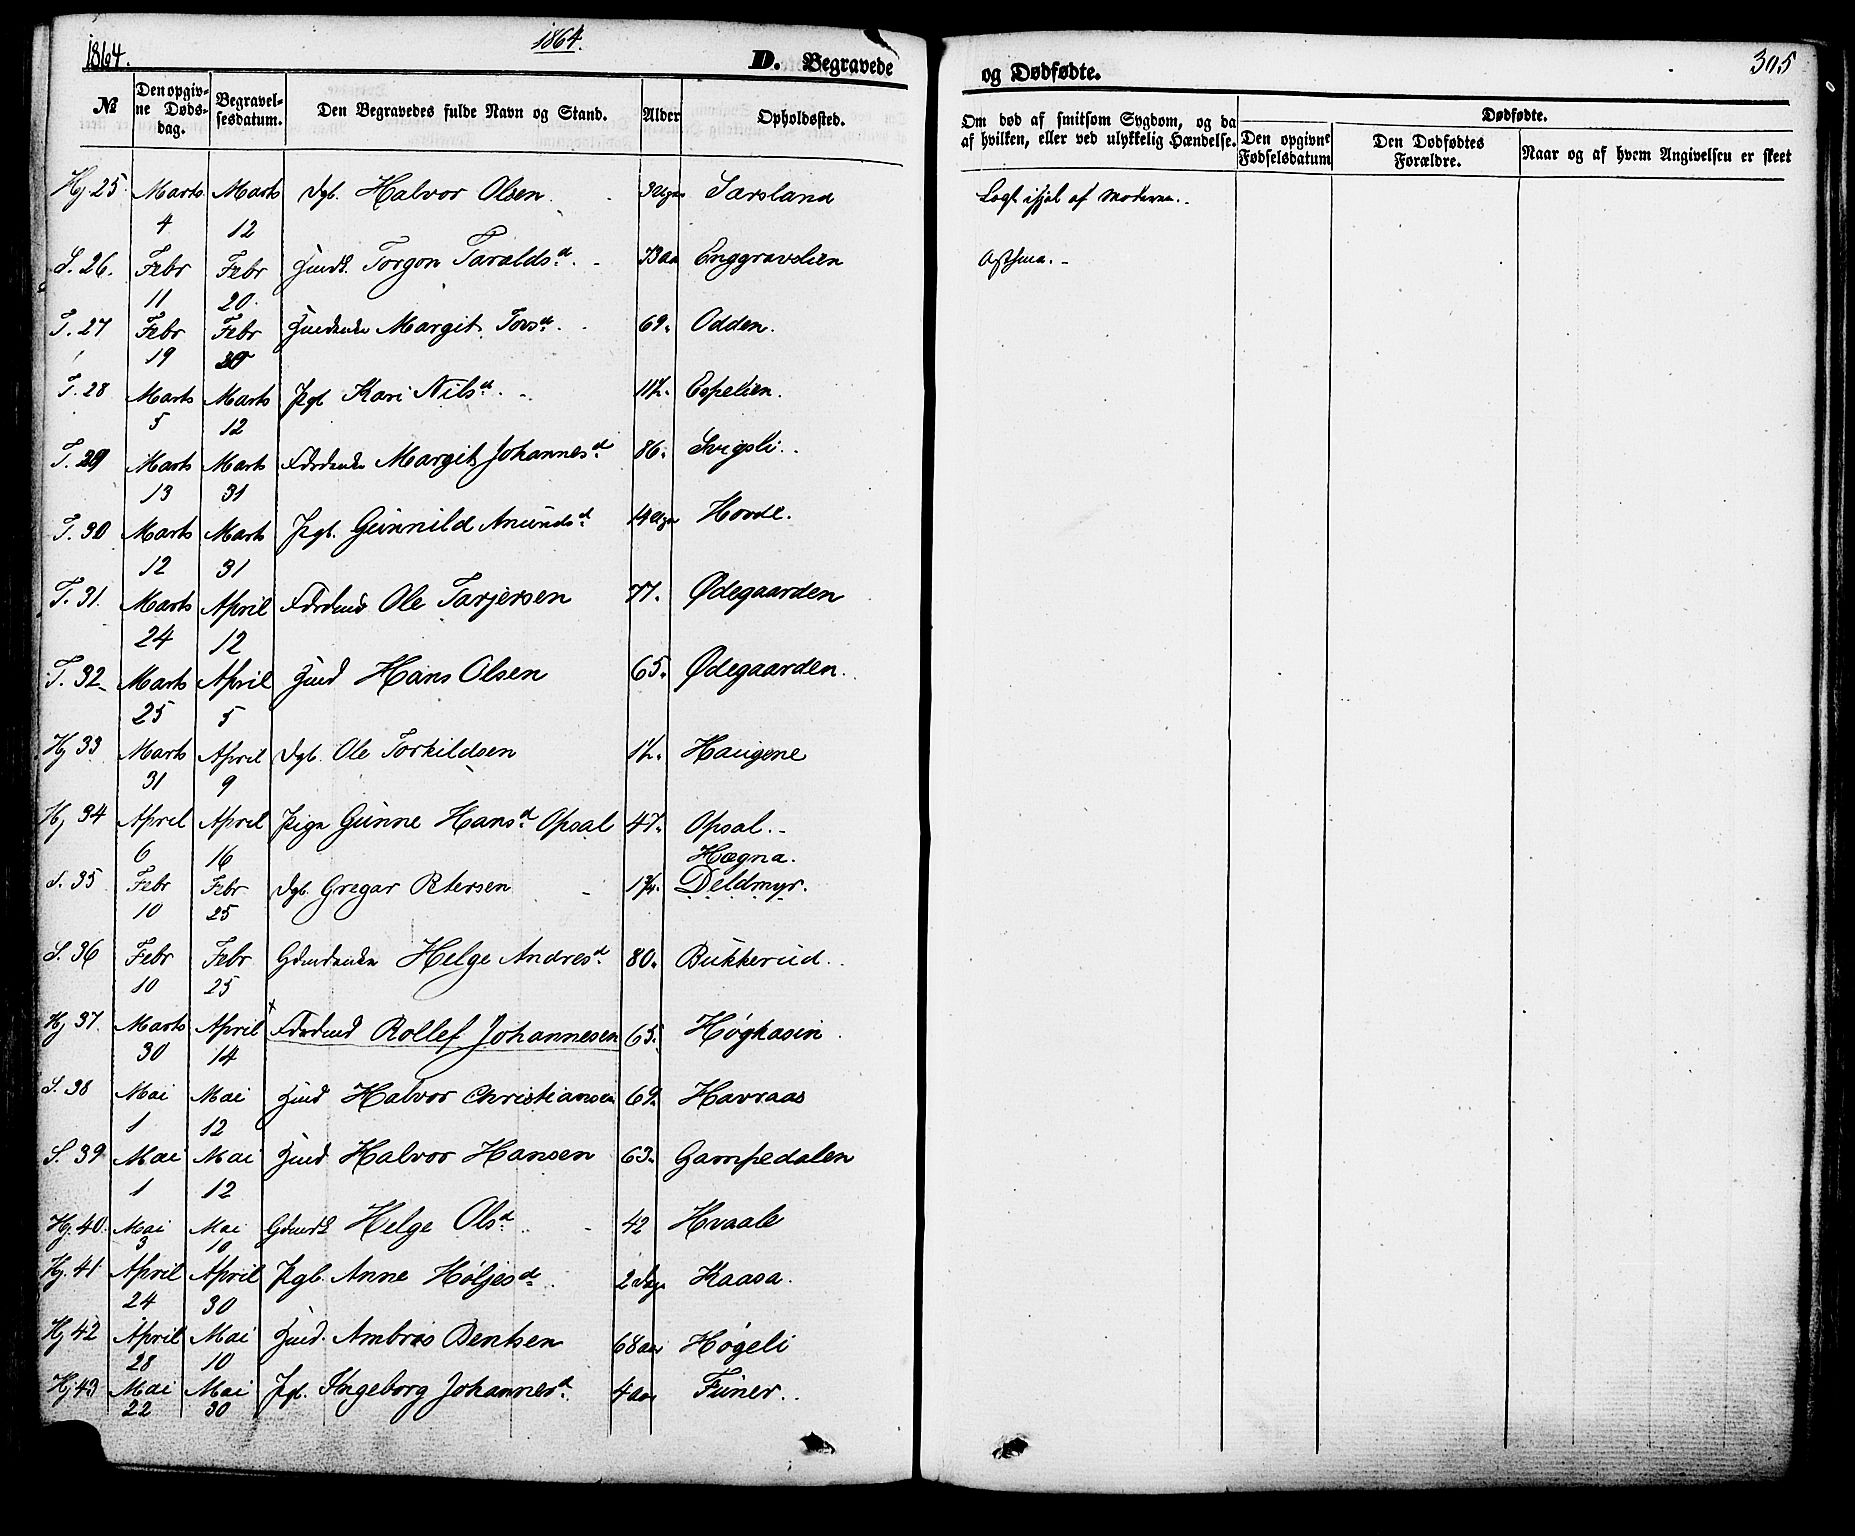 1864.
1864.
D. Begravede
og Dødfødte.
305
№
Den opgiv-
ne Døds-
dag.
Begravel-
sesdatum.
Den Begravedes fulde Navn og Stand.
Alder
Opholdssted.
Om død af smitsom Sygdom, og da
af hvilken, eller ved ulykkelig Hændelse.
Dødfødte.
Den opgivne
Fødselsdatum
Den Dødfødtes
Forældre.
Naar og af hvem Angivelsen er skeet
Hj 25 Marts 4 Marts 12 Dgb. Halvor Olsen. Særsland Lagt ihjel af Moderen.
S. 26. Febr 11 Febr 20. Torgon Taralds d. 73 aar Enggravslien Asthma.
T. 27 Febr 19 Febr Margit Tors d. 69. Odden.
T. 28 Marts 5 Marts 12 Pgb Kari Nils d. Espelien.
T. 29 Marts 13 Marts 31 Margit Johannes d. 86. Svigsli.
T. 30 Marts 12 Marts 31 Pgb. Gunnild Anunds d. Hovde.
T. 31. Marts 24 April 12 Ole Tarjersen 77. Ødegaarden
T. 32 Marts 25 April 5 Hans Olsen 65. Ødegaarden.
Hj 33 Marts 31 April 9 Dgb. Ole Torkildsen Haugene
Hj 34 April 6 April 16 Pige Gunne Hans d. Opsal 47. Opsal.
Hægna.
S. 35 Febr 10 Febr 25 Dgb. Gregar Petersen 1¾. Deldmyr.
S. 36 Febr 10 Febr 25 Helge Andres d. 80. Bukkerud.
Hj 37. Marts 30 April 14 Rollef Johannesen 65. Høgkasin.
S. 38 Mai 1 Mai 12 Halvor Christiansen 69. Havraas
S. 39 Mai 1 Mai 12 Halvor Hansen 63. Gampedalen
Hj. 40. Mai 3 Mai 10 Helge Ols d. 42 Hvaale
Hj. 41 April 24 April 30 Pgb. Anne Høljes d. 2 Dage Kaasa.
Hj 42 April 28 Mai 10 Ambros Bentsen 68 aar Høgeli
Hj. 43 Mai 22 Mai 30 Pgb. Ingeborg Johannes d. 4 aar Funer.